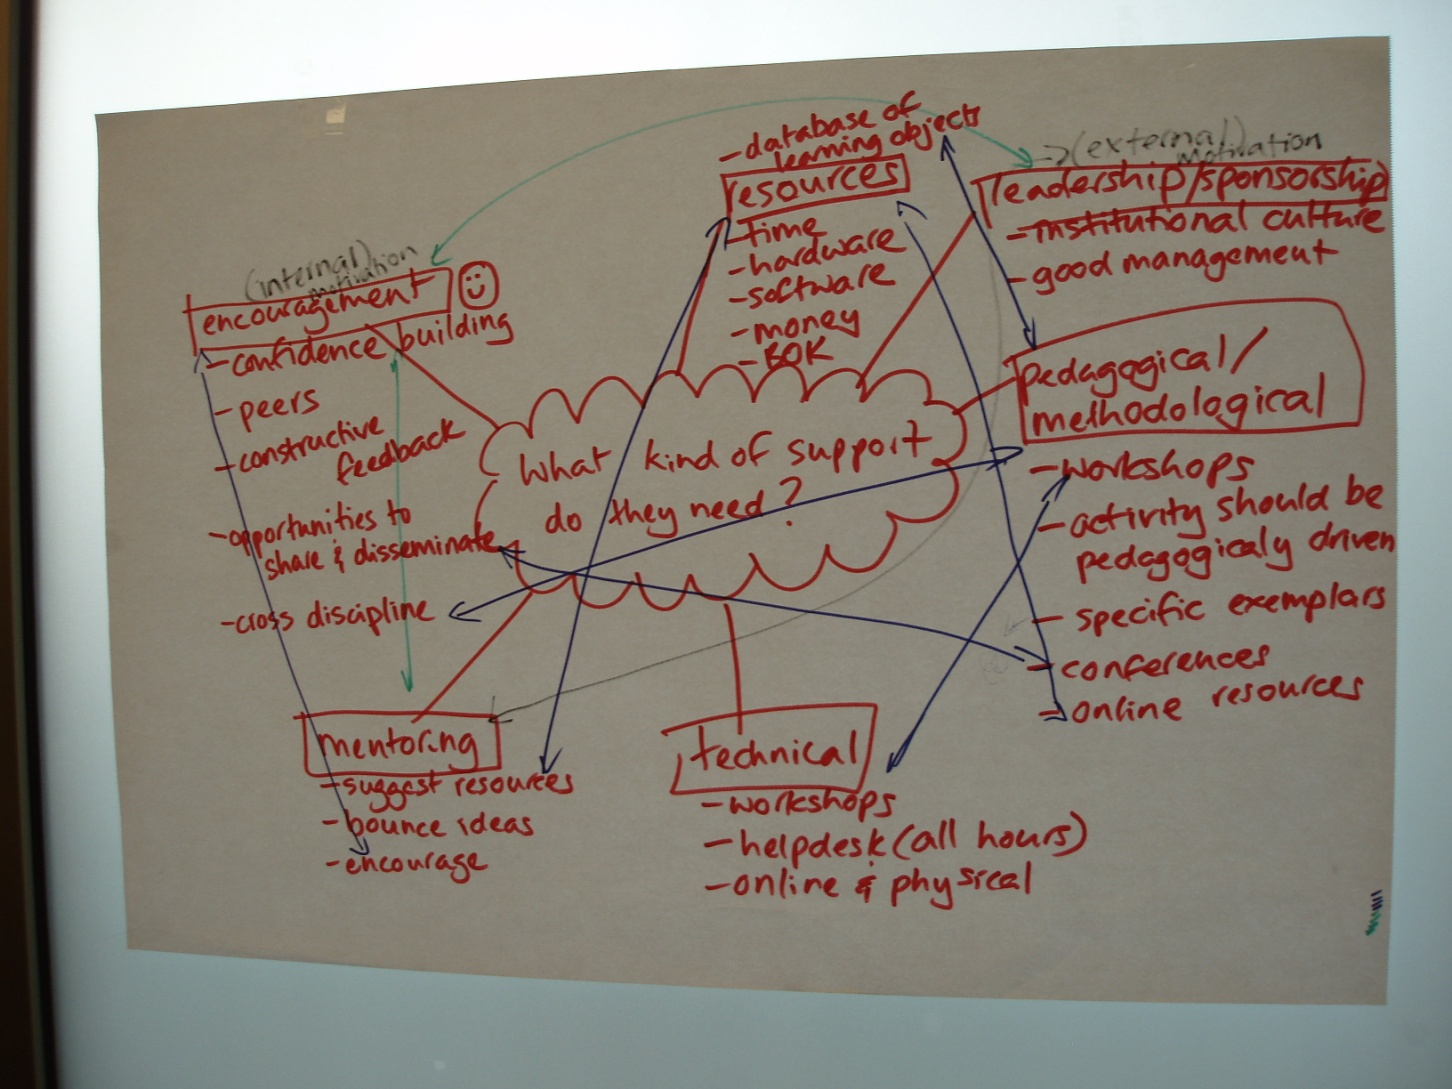 What kind of support
do they need?
(internal)
motivation
encouragement
- confidence building
- peers
- constructive
feedback
- opportunities to
share & disseminate
- cross discipline
- database of
learning objects
resources
- time
- hardware
- software
- money
- BOK
→(external)
motivation
leadership/sponsorship
- institutional culture
- good management
pedagogical/
methodological
- workshops
- activity should be
pedagogicaly driven
- specific exemplars
- conferences
- online resources
mentoring
- suggest resources
- bounce ideas
- encourage
technical
- workshops
- helpdesk (all hours)
- online & physical